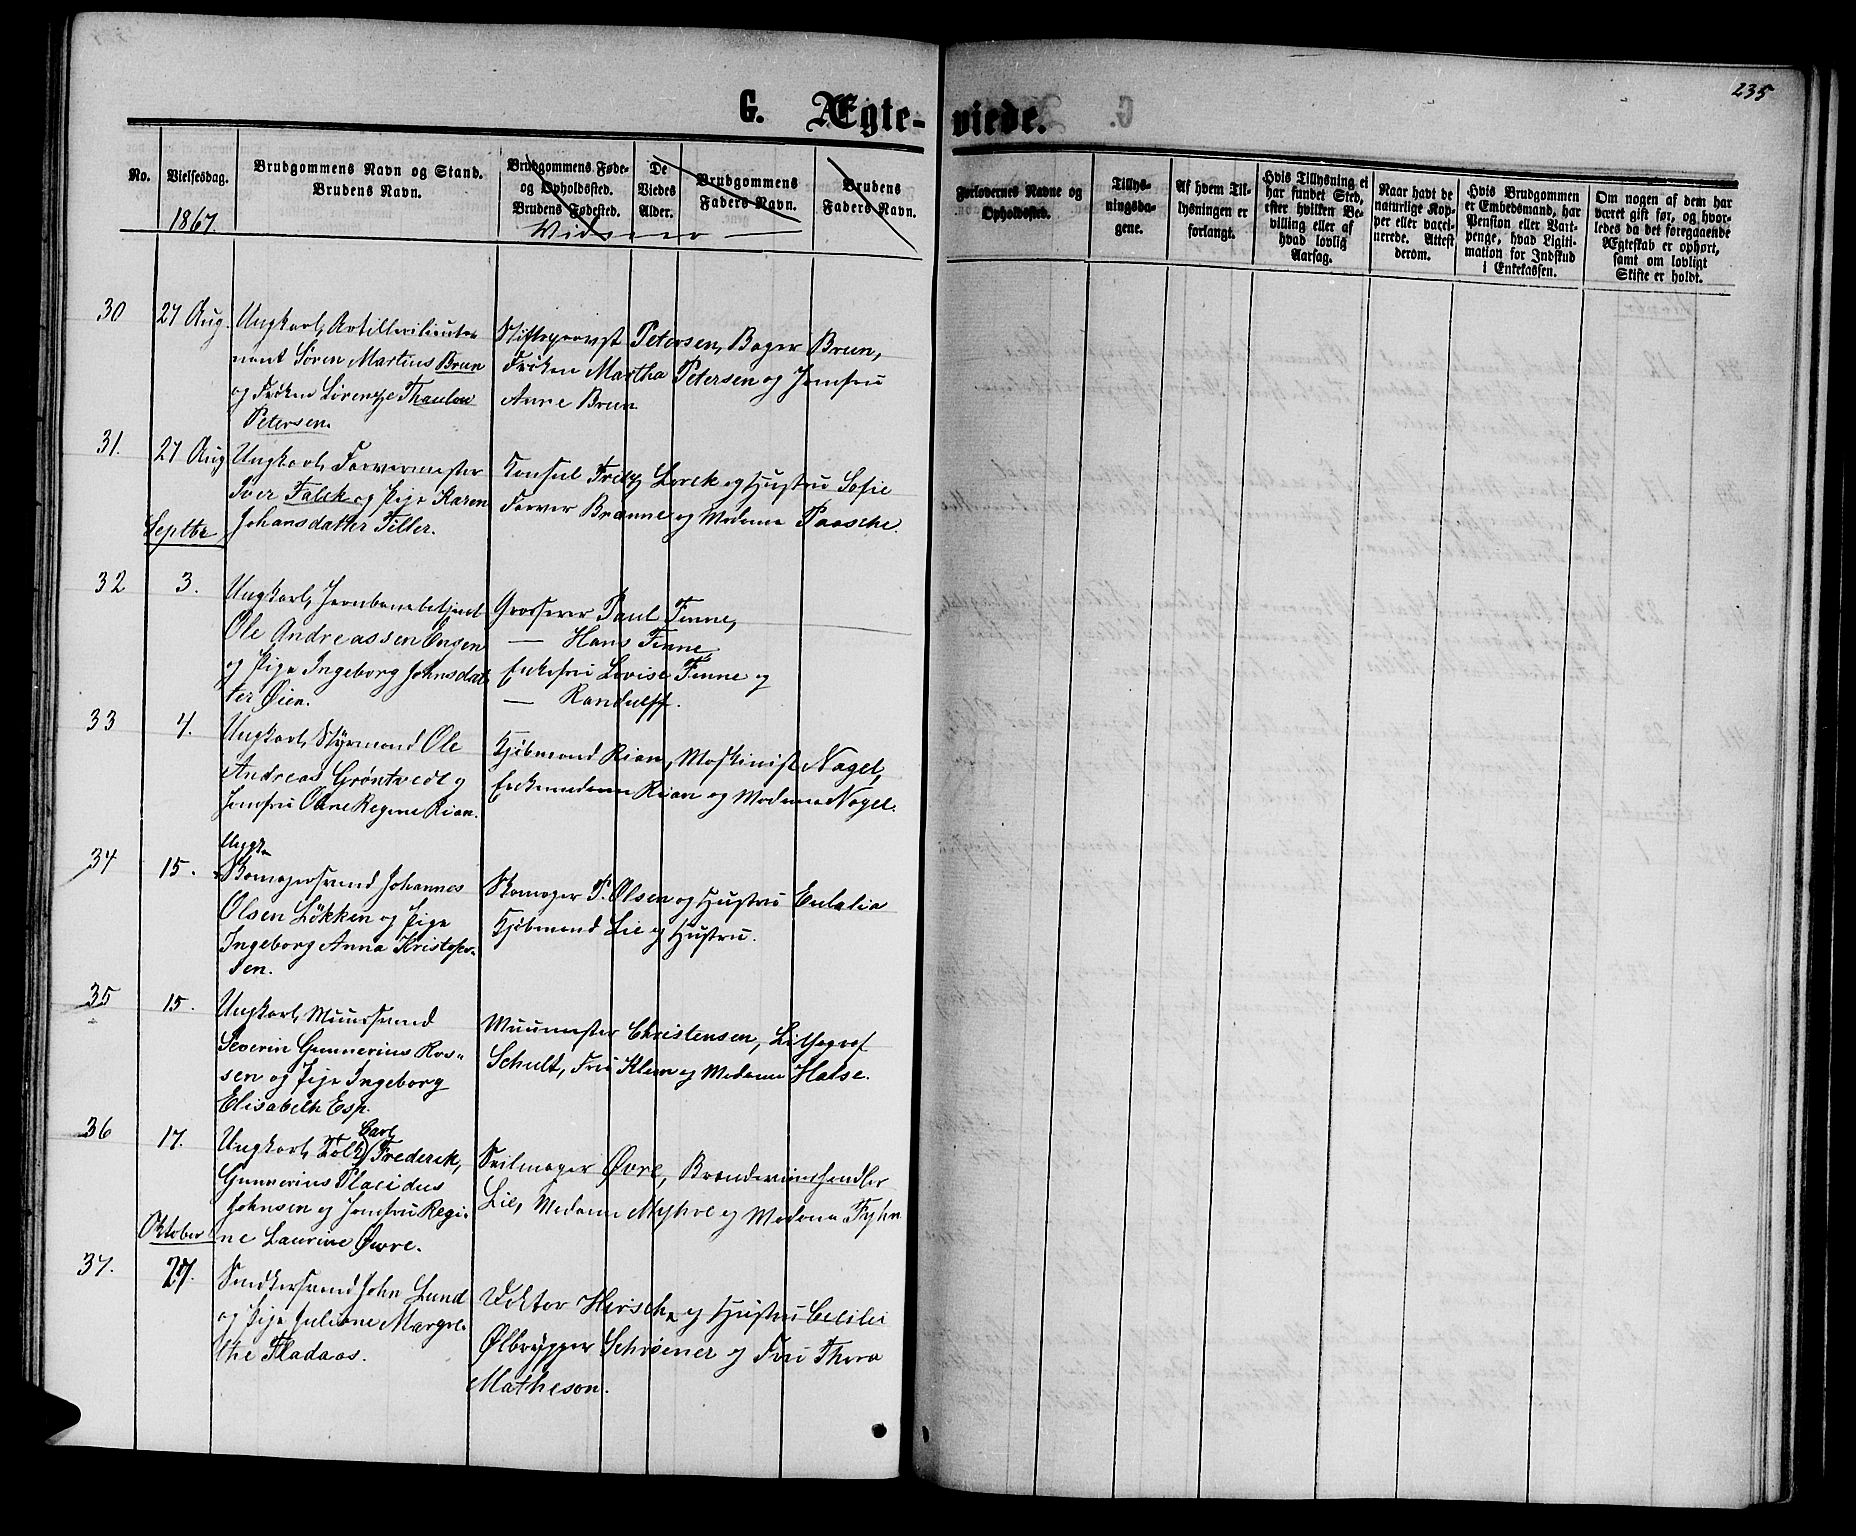 235
G. Ægte-viede.
No.
Vielsesdag.
1867
Brudgommens Navn og Stand.
Brudens Navn.
Brudgommens Føde-
og Opholdssted.
Brudens Fødested.
De
Viedes
Alder.
Brudgommens
Faders Navn.
Brudens
Faders Navn.
Vidner
Forlovernes Navne og
Opholdssted.
Tillys-
ningsda-
gene.
Af hvem Til-
lysningen er
forlangt.
Hvis Tillysning ei
har fundet Sted,
efter hvilken Be-
villing eller af
hvad lovlig
Aarsag.
Naar havt de
naturlige Kop-
per eller vacci-
nerede. Attest
derom.
Hvis Brudgommen
er Embedsmand, har
Pension eller Vart-
penge, hvad Ligiti-
mation for Indskud
i Enkekassen.
Om nogen af dem har
været gift før, og hvor-
ledes da det foregaaende
Ægteskab er ophørt,
samt om lovligt
Skifte er holdt.
30
27 Aug.
Ungkarl, Artillerilieute-
nant Søren Martius Brun
og Frøken Lorentze Thaulow
Petersen.
Stiftsprovst Petersen, Bager Brun,
Frøken Martha Petersen og Jomfru
Anne Brun
31.
27 Aug
Ungkarl, Farvermester
Iver Falck og Pige Karen
Johansdatter Tiller.
Konsul Fritz Lorck og Hustru Sofie
Farver Branne og Madame Paasche.
Septbr
32
3.
Ungkarl, Jernbanebetjent
Ole Andreassen Engen
og Pige Ingeborg Johnsdat-
ter Øien.
Grosserer Paul Finne,
— Hans Finne
Enkefru Lovise Finne og
— Randulff.
33
4.
Ungkarl, Styrmand Ole
Andreas Grøntvedt og
Jomfru Oline Regine Rian.
Kjøbmand Rian, Maskinist Nagel,
Enkemadame Rian og Madame Nagel.
34
15.
Ungk.
Skomagersvend Johannes
Olsen Løkken og Pige
Ingeborg Anna Kristofer-
sen.
Skomager P. Olsen og Hustru Eulalia
Kjøbmand Lie og Hustru.
35
15.
Ungkarl, Muursvend
Severin Gunnerius Ros-
sen og Pige Ingeborg
Elisabeth Esp.
Muurmester Christensen, Lithograf
Schult, Fru Klem og Madame Halse.
36
17.
Ungkarl, Tolk Carl Frederik,
Gunnerius Placidus
Johnsen og Jomfru Regi-
ne Laurine Øvre.
Seilmager Øvre, Brændevinshandler
Lie, Madame Myhre og Madame Fyhn
Oktober
37.
27.
Snedkersvend John Lund
og Pige Juliane Margre-
the Fladaas.
Doktor Hirsch og Hustru Cecilie
Ølbrygger Schreiner og Fru Thora
Matheson.